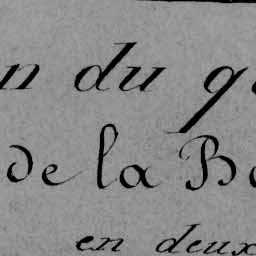 n du q
de la B
en deux